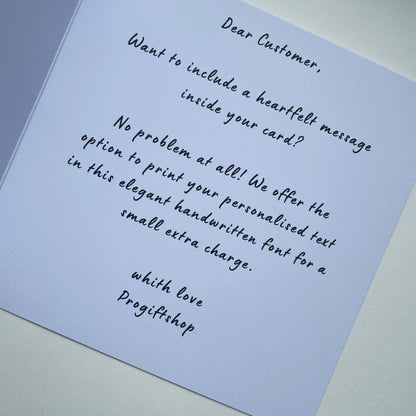 Dear Customer,
Want to include a heartfelt message
inside your card?
No problem at all! We offer the
option to print your personalised text
in this elegant handwritten font for a
small extra charge.
whith love
Progiftshop